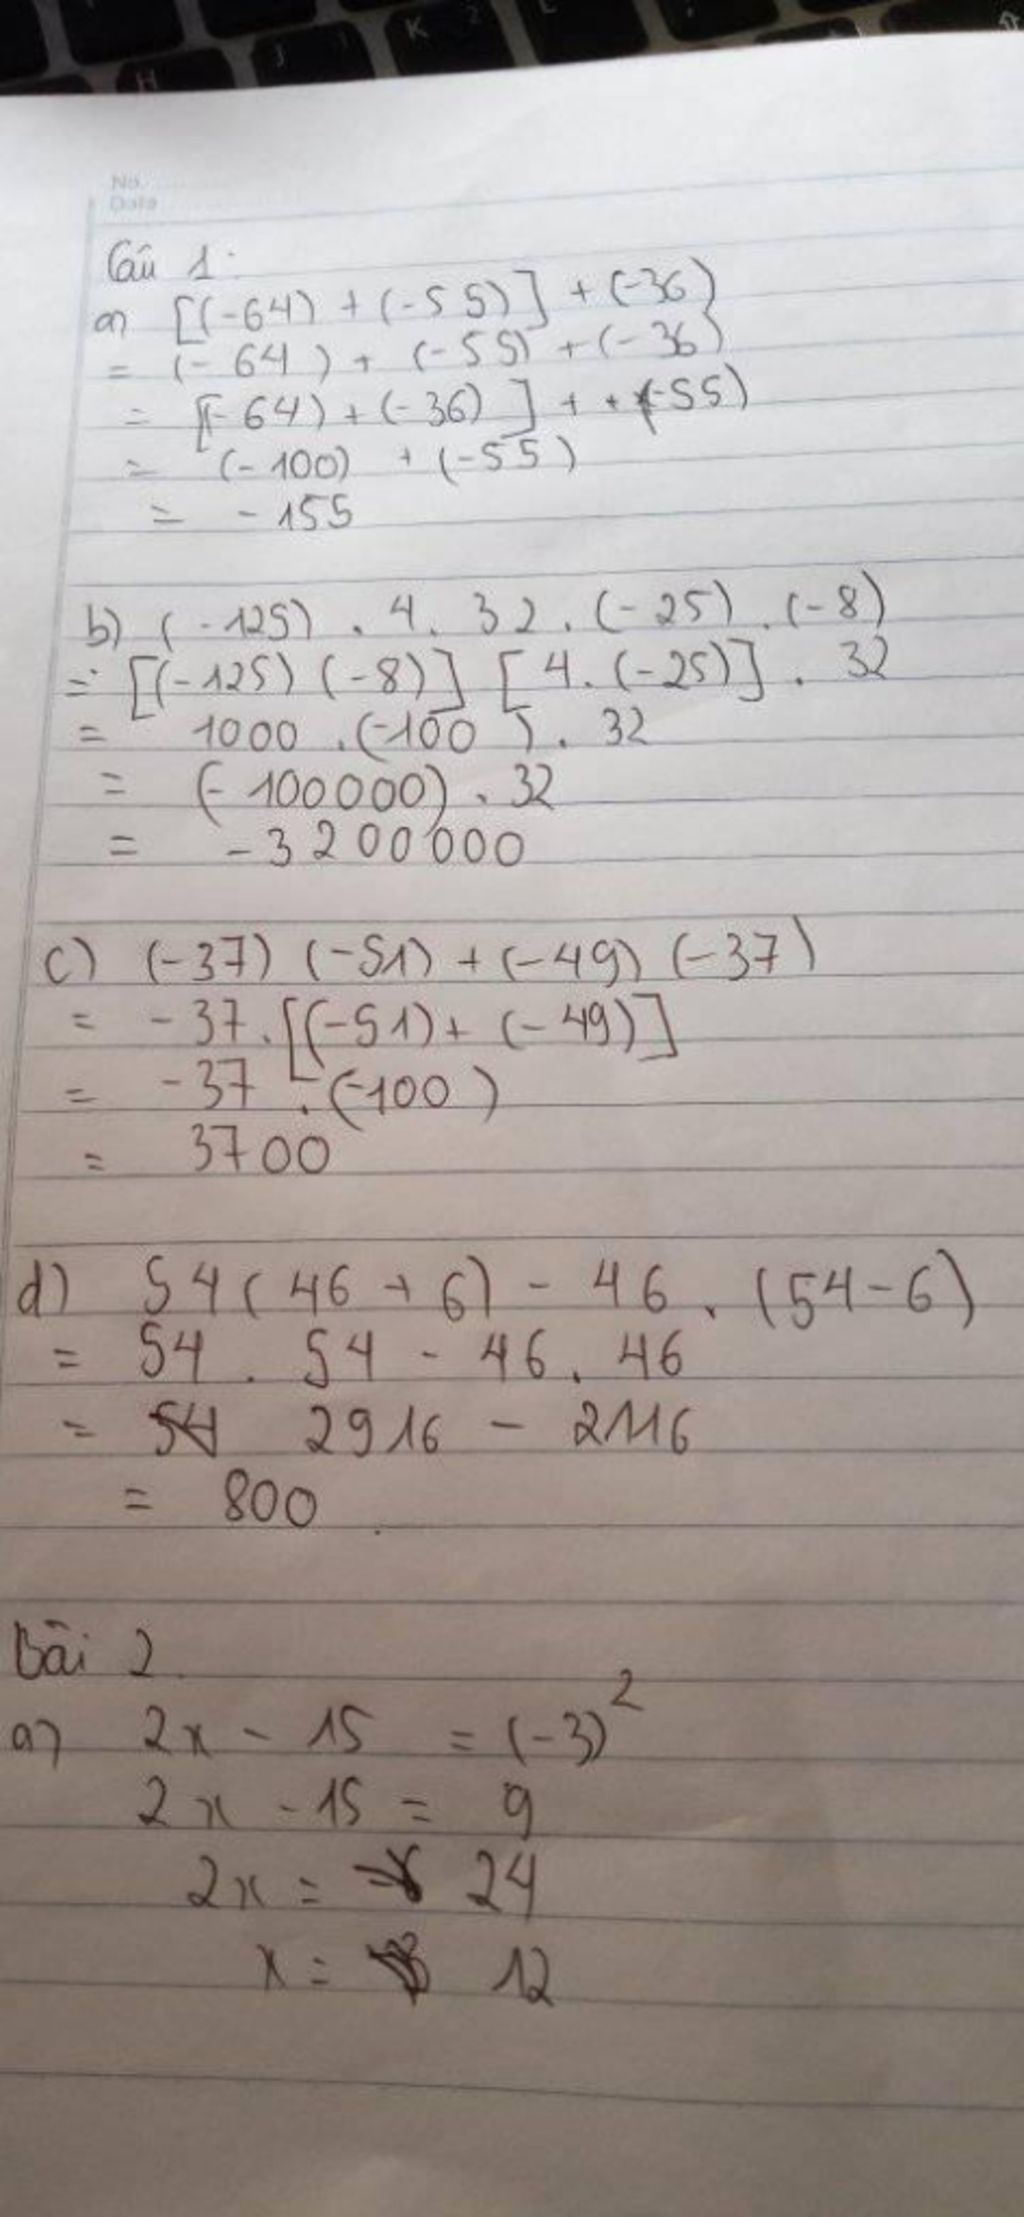 K
J
H
No.
Date
Câu 1:
a) [(-64) + (-55)] + (-36)
= (-64) + (-55) + (-36)
= [-64) + (-36)] + + (-55)
= (-100) + (-55)
= -155
b) (-125) . 4 . 32 . (-25) . (-8)
= [(-125) (-8)] [4 . (-25)] . 32
= 1000 . (-100) . 32
= (-100000) . 32
= -3200000
c) (-37) (-51) + (-49) (-37)
= -37 . [(-51) + (-49)]
= -37 . (-100)
= 3700
d) 54 (46 + 6) - 46 . (54 - 6)
= 54 . 54 - 46 . 46
= 2916 - 2116
= 800
Bài 2
a) 2x - 15 = (-3)²
2x - 15 = 9
2x = 24
x = 12